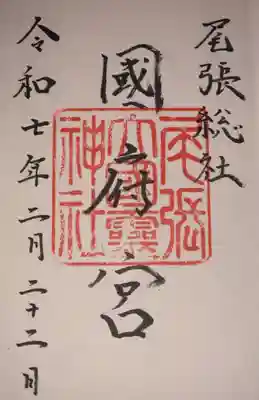 尾張総社
國府宮
令和七年二月二十二日
尾張
大國靈
神社